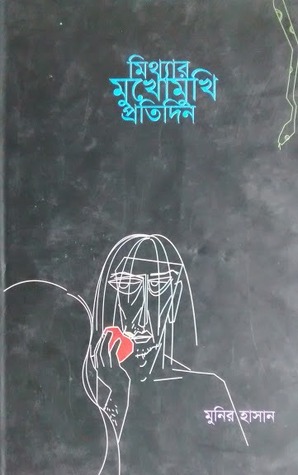 মিথ্যার
মুখোমুখি
প্রতিদিন
মুনির হাসান